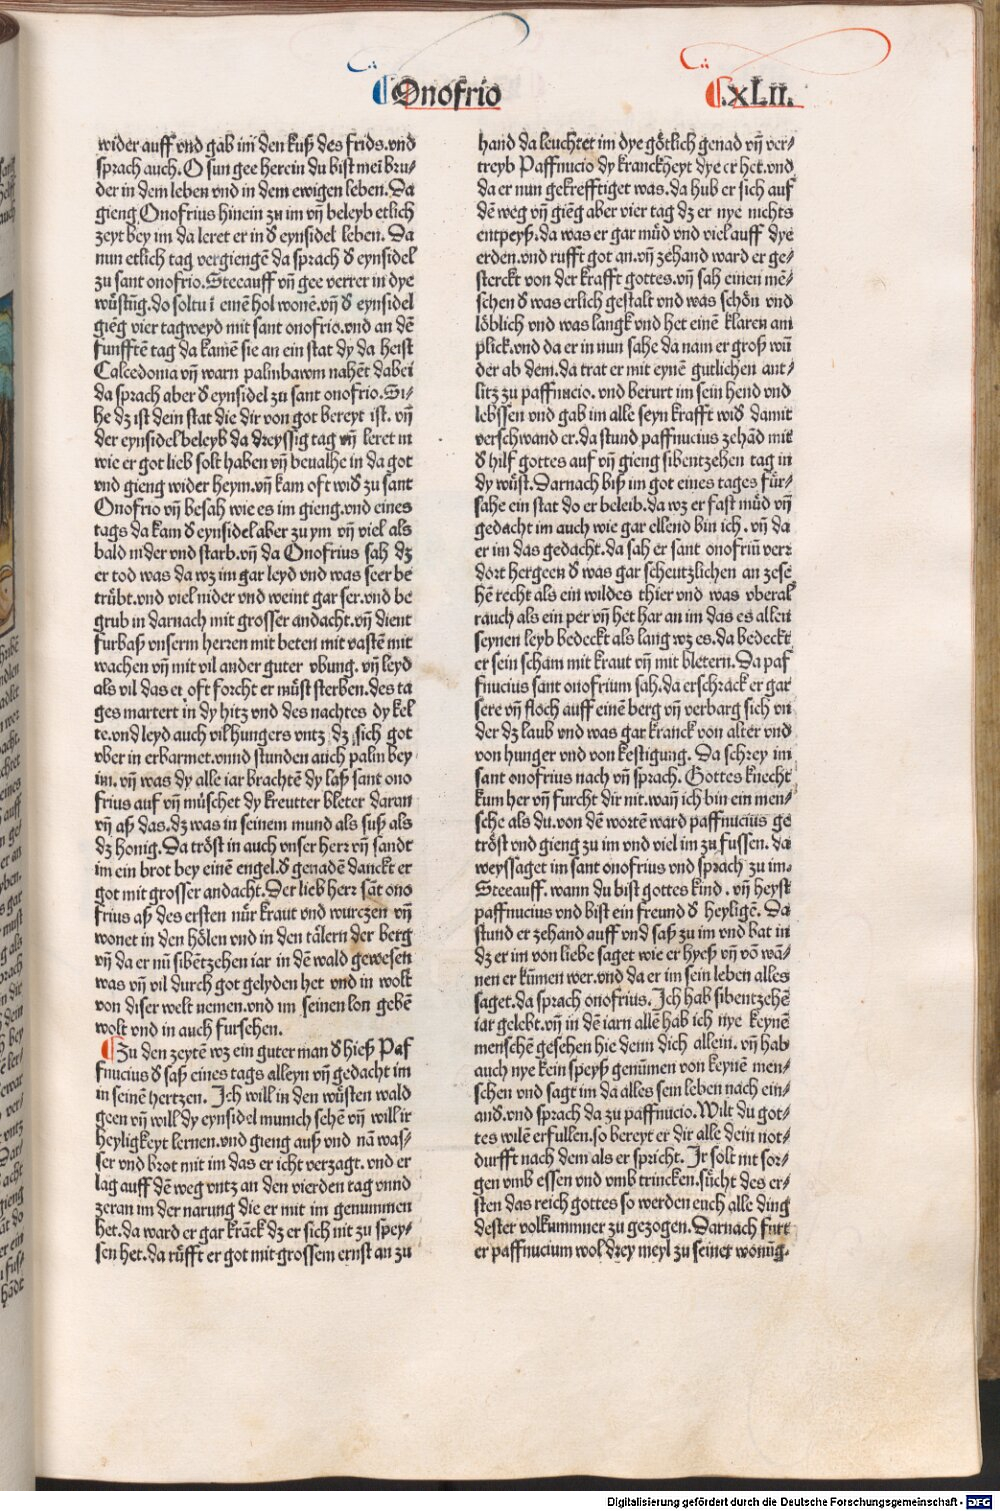 Onofrio
.xLII.
wider auff vnd gab im den kuß des frids.vnd
sprach auch.O sun gee herein du bist mei bru⸗
der in dem leben vnd in dem ewigen leben. Da
gieng Onofrius hinein zu im vñ beleyb etlich
zeyt bey im da leret er in ð eynsidel leben. Da
nun etlich tag vergiengē da sprach ð eynsidel
zu sant onofrio.Steeauff vñ gee verrer in dye
wüstūg.do soltu ī einē hol wonē.vñ ð eynsidel
giēg vier tagweyd mit sant onofrio.vnd an dē
funfftē tag da kamē sie an ein stat dy da heist
Calcedonia vñ warn palmbawm nahēt dabei
da sprach aber ð eynsidel zu sant onofrio.Si⸗
he dz ist dein stat die dir von got bereyt ist. vñ
der eynsidel beleyb da dreyssig tag vñ leret in
wie er got lieb solt haben vñ beualhe in da got
vnd gieng wider heym.vñ kam oft wið zu sant
Onofrio vñ besah wie es im gieng.vnd eines
tags da kam ð eynsidel aber zu ym vñ viel als
bald nider vnd starb.vñ da Onofrius sah dz
er tod was da wz im gar leyd vnd was seer be
trübt.vnd viel nider vnd weint gar ser.vnd be
grub in darnach mit grosser andacht.vñ dient
furbaß vnserm herren mit beten mit vastē mit
wachen vñ mit vil ander guter vbung. vñ leyd
als vil das er oft forcht er müst sterben.des ta
ges martert in dy hitz vnd des nachtes dy kel
te.vnd leyd auch vil hungers vntz dz sich got
vber in erbarmet.vnnd stunden auch palm bey
im. vñ was dy alle iar brachtē dy laß sant ono
frius auf vñ müschet dy kreutter bleter daran
vñ aß das.dz was in seinem mund als suß als
dz honig.Da tröst in auch vnser herr vñ sandt
im ein brot bey einē engel.ð genadē danckt er
got mit grosser andacht.Der lieb herr sāt ono
frius aß des ersten nür kraut vnd wurczen vñ
wonet in den hölen vnd in den tälern der berg
vñ da er nū sibētzehen iar in dē wald gewesen
was vñ vil durch got gelyden het vnd in wolt
von diser welt nemen.vnd im seinen lon gebē
wolt vnd in auch fursehen.
Zu den zeytē wz ein guter man ð hieß Paf
fnucius ð saß eines tags alleyn vñ gedacht im
in seinē hertzen. Ich will in den wüsten wald
geen vñ will dy eynsidel munich sehē vñ will ir
heyligkeyt lernen.vnd gieng auß vnd nā was⸗
ser vnd brot mit im das er icht verzagt. vnd er
lag auff dē weg vntz an den vierden tag vnnd
zeran im der narung die er mit im genummen
het.da ward er gar krāck dz er sich nit zu spey⸗
sen het.da rüfft er got mit grossem ernst an zu
hand da leuchtet im dye götlich genad vñ ver⸗
treyb Paffnucio dy kranckheyt dye er het.vnd
da er nun gekrefftiget was.da hub er sich auf
dē weg vñ giēg aber vier tag dz er nye nichts
entpeyß.da was er gar müd vnd viel auff dye
erden.vnd rufft got an.vñ zehand ward er ge⸗
sterckt von der krafft gottes.vñ sah einen mē⸗
schen ð was erlich gestalt vnd was schön vnd
löblich vnd was langk vnd het einē klaren an
plick.vnd da er in nun sahe da nam er groß wū
der ab dem.da trat er mit eynē gutlichen ant⸗
litz zu paffnucio. vnd berurt im sein hend vnd
lebssen vnd gab im alle seyn krafft wið damit
verschwand er.da stund paffnucius zehād mit
ð hilf gottes auf vñ gieng sibentzehen tag in
dy wüst.Darnach biß im got eines tages für⸗
sahe ein stat do er beleib.da wz er fast müd vñ
gedacht im auch wie gar ellend bin ich . vñ da
er im das gedacht.da sah er sant onofriū verr
dort hergeen ð was gar scheutzlichen an zese
hē recht als ein wildes thier vnd was vberal
rauch als ein per vñ het har an im das es allen
seynen leyb bedeckt als lang wz es.da bedeckt
er sein scham mit kraut vñ mit bletern.Da paf
fnucius sant onofrium sah.da erschrack er gar
sere vñ floch auff einē berg vñ verbarg sich vn
der dz laub vnd was gar kranck von alter vnd
von hunger vnd von kestigung. Da schrey im
sant onofrius nach vñ sprach. Gottes knecht
kum her vñ furcht dir nit.wañ ich bin ein men⸗
sche als du.von dē wortē ward paffnucius ge
tröst vnd gieng zu im vnd viel im zu fussen. da
weyssaget im sant onofrius vnd sprach zu im.
Steeauff. wann du bist gottes kind . vñ heyst
paffnucius vnd bist ein freund ð heyligē. Da
stund er zehand auff vnd saß zu im vnd bat in
dz er im von liebe saget wie er hyeß vñ vō wā⸗
nen er kūmen wer.vnd da er im sein leben alles
saget.da sprach onofrius. Ich hab sibentzehē
iar gelebt.vñ in dē iarn allē hab ich nye keynē
menschē gesehen hie denn dich allein. vñ hab
auch nye kein speyß genūmen von keynē men⸗
schen vnd sagt im da alles sein leben nach ein⸗
anð.vnd sprach da zu paffnucio.Wilt du got⸗
tes wilē erfullen.so bereyt er dir alle dein not⸗
durfft nach dem als er spricht. Ir solt nit sor⸗
gen vmb essen vnd vmb trincken.sücht des er⸗
sten das reich gottes so werden euch alle ding
dester volkummner zu gezogen. Darnach furt
er paffnucium wol drey meyl zu seiner wonūg.
Digitalisierung gefördert durch die Deutsche Forschungsgemeinschaft - DFG